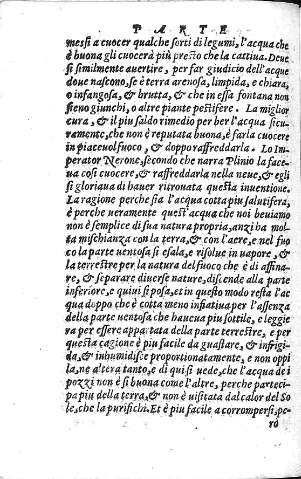 PARTE
messi a cuocer qualche sorti di legumi, l'acqua che
è buona gli cuocerà piu presto che la cattiua. Deue
si similmente auertire, per far giudicio dell'acque
doue nascono, se è terra arenosa, limpida, e chiara,
o infangosa, & brutta, & che in essa fontana non
sieno giunchi, o altre piante pestifere. La miglior
cura, & il piu saldo rimedio per ber l'acqua sicu-
ramente, che non è reputata buona, è farla cuocere
in piaceuol fuoco, & doppo raffreddarla. Lo Im-
perator Nerone, secondo che narra Plinio la face-
ua cosi cuocere, & raffreddarla nella neue, & egli
si gloriaua di hauer ritrouata questa inuentione.
La ragione perche sia l'acqua cotta piu salutifera,
è perche veramente quest'acqua che noi beuiamo
non è semplice di sua natura propria, anzi ha mol-
ta mischianza con la terra, & con l'aere, e nel fuo
co la parte uentosa si esala, e risolue in vapore, &
la terrestre per la natura del fuoco che è di affina-
re, & separare diuerse nature, discende alla parte
inferiore, e quiui si posa, et in questo modo resta l'ac
qua doppo che è cotta meno infiatiua per l'assenza
della parte uentosa che haueua piu sottile, e leggie
ra per essere appartata della parte terrestre, e per
questa cagione è piu facile da guastare, & infrigi-
da, & inhumidisce proportionatamente, e non oppi
la, ne altera tanto, e di qui si vede, che l'acqua de i
pozzi non è si buona come l'altre, perche parteci-
pa piu della terra, & non è uisitata dal calor del So
le, che la purifichi. Et è piu facile a corrompersi, pe-
ro